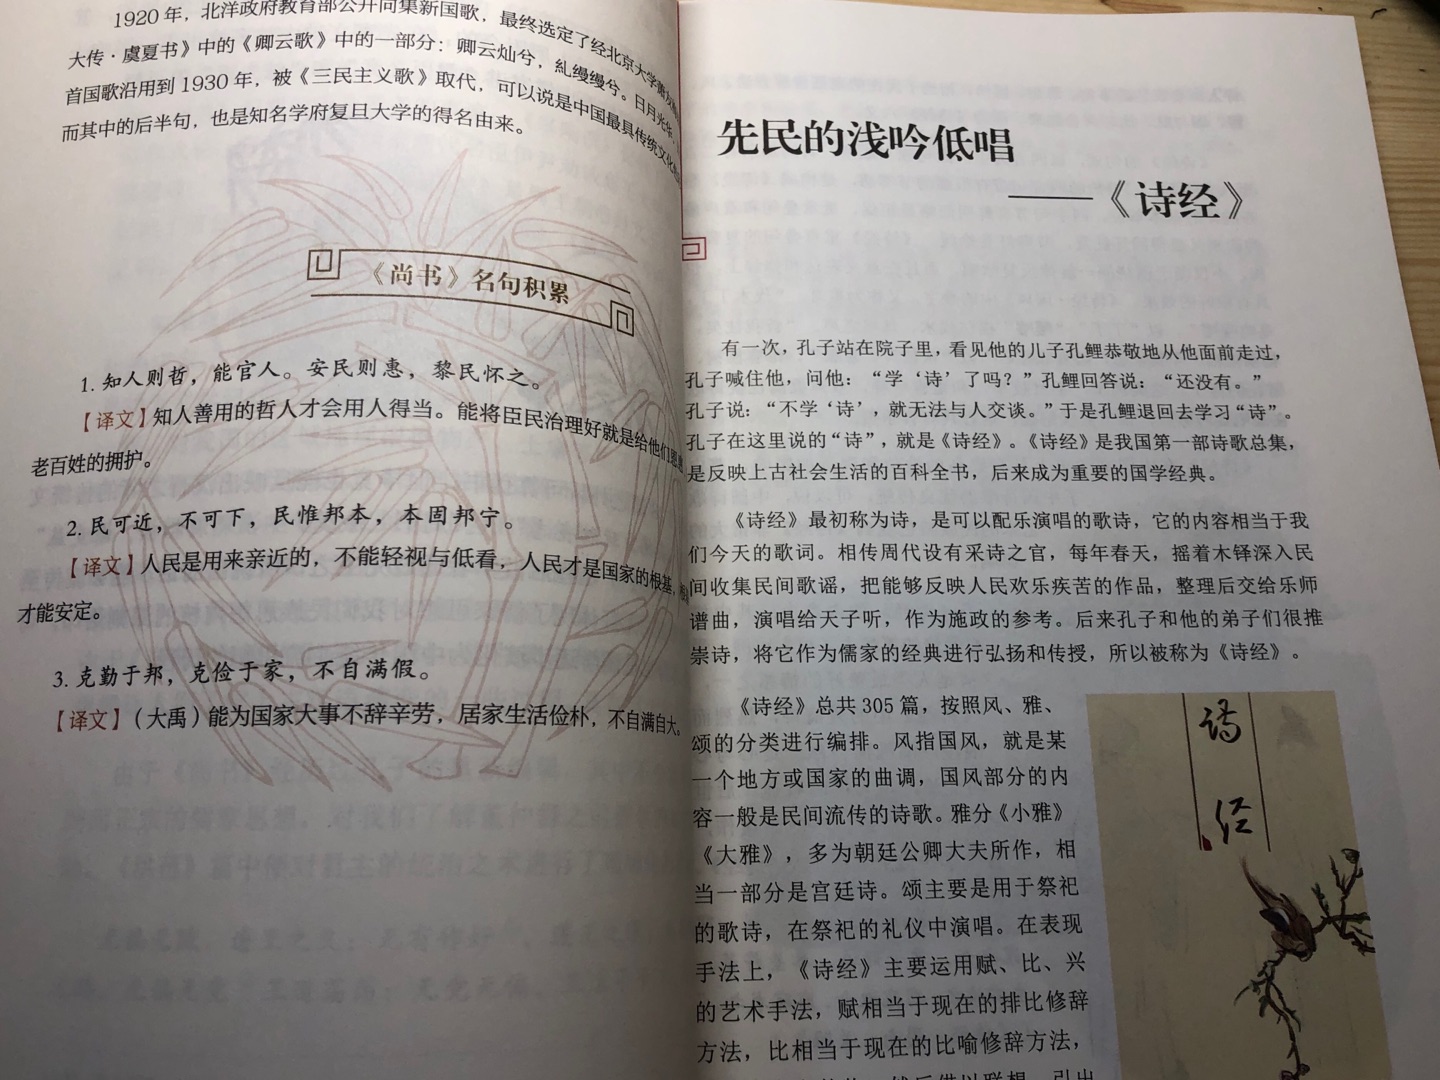 1920年，北洋政府教育部公开向集新国歌，最终选定了经北京大学
大传·虞夏书》中的《卿云歌》中的一部分：卿云灿兮，糺缦缦兮。日月光华，
首国歌沿用到1930年，被《三民主义歌》取代，可以说是中国最具传统文化
而其中的后半句，也是知名学府复旦大学的得名由来。
《尚书》名句积累
1. 知人则哲，能官人。安民则惠，黎民怀之。
【译文】知人善用的哲人才会用人得当。能将臣民治理好就是给他们恩惠
老百姓的拥护。
2. 民可近，不可下，民惟邦本，本固邦宁。
【译文】人民是用来亲近的，不能轻视与低看，人民才是国家的根基，
才能安定。
3. 克勤于邦，克俭于家，不自满假。
【译文】（大禹）能为国家大事不辞辛劳，居家生活俭朴，不自满自大。
先民的浅吟低唱
——《诗经》
有一次，孔子站在院子里，看见他的儿子孔鲤恭敬地从他面前走过，
孔子喊住他，问他：“学‘诗’了吗？”孔鲤回答说：“还没有。”
孔子说：“不学‘诗’，就无法与人交谈。”于是孔鲤退回去学习“诗”。
孔子在这里说的“诗”，就是《诗经》。《诗经》是我国第一部诗歌总集，
是反映上古社会生活的百科全书，后来成为重要的国学经典。
《诗经》最初称为诗，是可以配乐演唱的歌诗，它的内容相当于我
们今天的歌词。相传周代设有采诗之官，每年春天，摇着木铎深入民
间收集民间歌谣，把能够反映人民欢乐疾苦的作品，整理后交给乐师
谱曲，演唱给天子听，作为施政的参考。后来孔子和他的弟子们很推
崇诗，将它作为儒家的经典进行弘扬和传授，所以被称为《诗经》。
《诗经》总共305篇，按照风、雅、
颂的分类进行编排。风指国风，就是某
一个地方或国家的曲调，国风部分的内
容一般是民间流传的诗歌。雅分《小雅》
《大雅》，多为朝廷公卿大夫所作，相
当一部分是宫廷诗。颂主要是用于祭祀
的歌诗，在祭祀的礼仪中演唱。在表现
手法上，《诗经》主要运用赋、比、兴
的艺术手法，赋相当于现在的排比修辞
方法，比相当于现在的比喻修辞方法，
然后借以联想，引出
诗
经